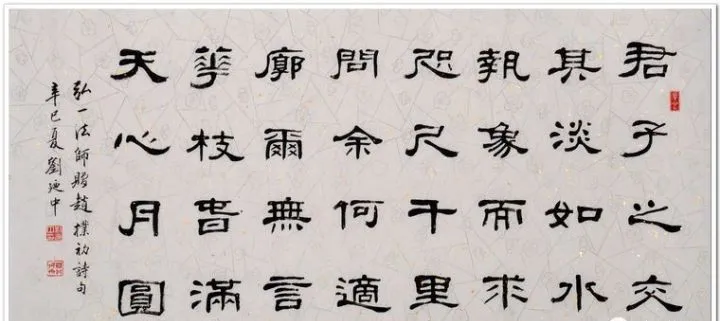 君子之交
其淡如水
執象而求
咫尺千里
問余何適
廓爾無言
華枝春滿
天心月圓
弘一法師贈趙樸初詩句
辛巳夏劉延中